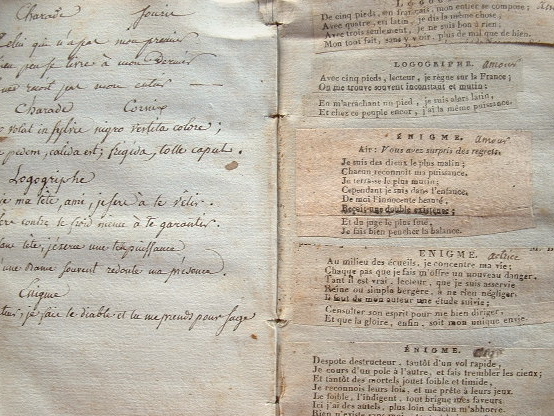 Charade Souris
Celui qui n'a pas mon premier
peu se livre à mon dernier
par mon entier
Charade Cornix
volat in sylvis nigro vestita colore ;
pedem, calida est ; frigida, tolle caput .
Logogriphe
ma tête, ami, je sers à te vêtir .
contre le froid même à te garantir .
tête ; je serai une puissance
une dame souvent redoute ma présence .
Enigme
je fais le diable et tu me prends pour sage
De cinq pieds, en français, mon entier se compose ;
Avec quatre, en latin, je dis la même chose ;
Avec trois seulement, je ne suis bon à rien ;
Mon tout fait, sans y voir, plus de mal que de bien.
LOGOGRIPHE. amour
Avec cinq pieds, lecteur, je règne sur la France ;
On me trouve souvent inconstant et mutin :
En m'arrachant un pied, je suis alors latin,
Et chez ce peuple encor, j'ai la même puissance.
ÉNIGME. amour
Air : Vous avez surpris des regrets.
Je suis des dieux le plus malin ;
Chacun reconnoît ma puissance.
Je terrasse le plus mutin ;
Cependant je suis dans l'enfance.
De moi l'innocente beauté,
Reçoit une double existence ;
Et du juge le plus futé,
Je fais bien pencher la balance.
ENIGME. actrice
Au milieu des écueils, je concentre ma vie ;
Chaque pas que je fais m'offre un nouveau danger.
Tant il est vrai, lecteur, que je suis asservie
Reine ou simple bergère, à ne rien négliger.
Il faut de mon auteur une étude suivie ;
Consulter son esprit pour me bien diriger,
Et que la gloire, enfin, soit mon unique envie.
ÉNIGME.
Despote destructeur, tantôt d'un vol rapide,
Je cours d'un pôle à l'autre, et fais trembler les cieux ;
Et tantôt des mortels jouet foible et timide,
Je reconnois leurs lois, et me prête à leurs jeux.
Le foible, l'indigent, tout brigue mes faveurs
Ici j'ai des autels, plus loin chacun m'abhorre.